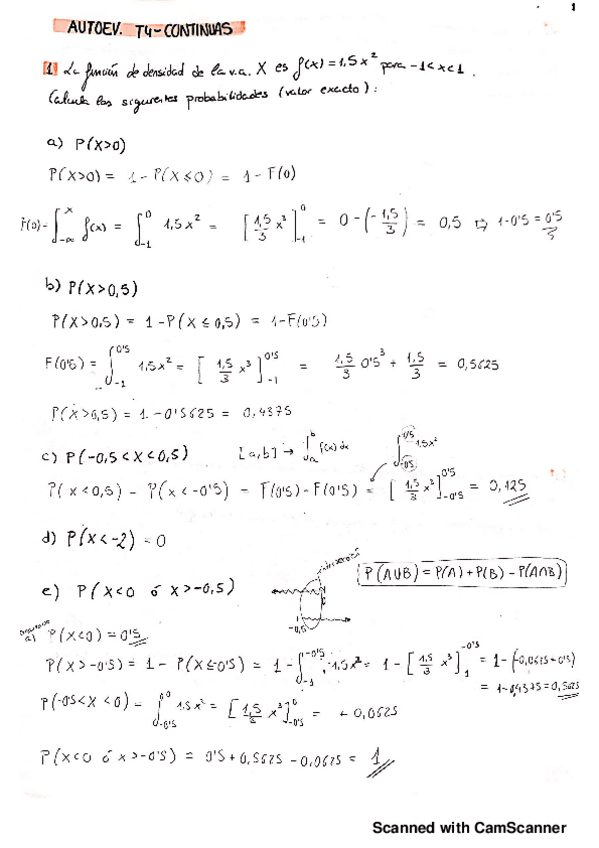 1
AUTOEV. T4-CONTINUAS
1. La función de densidad de la v.a. X es f(x) = 1,5x² para -1<x<1.
Calcula las siguientes probabilidades (valor exacto):
a) P(X>0)
P(X>0) = 1 - P(X≤0) = 1 - F(0)
F(0) - ∫_{-∞}^{x} f(x) = ∫_{-1}^{0} 1,5x² = [1,5/3 x³]_{-1}^{0} = 0 - (-1,5/3) = 0,5 ⇨ 1-0'5 = 0'5
b) P(X>0,5)
P(X>0,5) = 1 - P(X ≤ 0,5) = 1 - F(0'5)
F(0'5) = ∫_{-1}^{0'5} 1,5x² = [1,5/3 x³]_{-1}^{0'5} = 1,5/3 0'5³ + 1,5/3 = 0,5625
P(X>0,5) = 1 - 0'5625 = 0,4375
c) P(-0,5<X<0,5) [a,b] → ∫_{a}^{b} f(x) dx ∫_{-0'5}^{0'5} 1,5x²
P(X<0,5) - P(X<-0'5) = F(0'5) - F(0'5) = [1,5/3 x³]_{-0'5}^{0'5} = 0,125
d) P(X<-2) = 0
e) P(X<0 ó X>-0,5) -0,5 P(A∪B) = P(A) + P(B) - P(A∩B)
a) P(X<0) = 0'5
P(X>-0'5) = 1 - P(X≤-0'5) = 1 - ∫_{-1}^{-0'5} 1,5x² = 1 - [1,5/3 x³]_{1}^{-0'5} = 1 - (-0,0625+0'5)
= 1-0,4375 = 0,5625
P(-0'5<X<0) = ∫_{-0'5}^{0} 1,5x² = [1,5/3 x³]_{-0'5}^{0} = + 0,0625
P(X<0 ó X>-0'5) = 0'5 + 0,5625 - 0,0625 = 1
Scanned with CamScanner